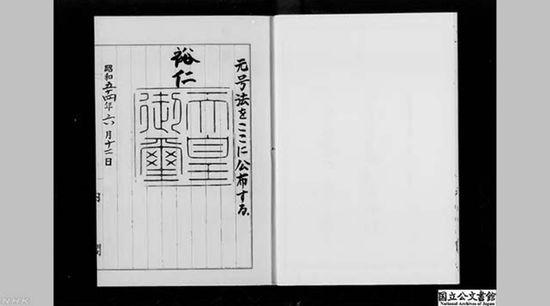 元号法をここに公布する。
裕仁
天皇
御璽
昭和五十四年六月十二日
内閣
国立公文書館
National Archives of Japan
NHK